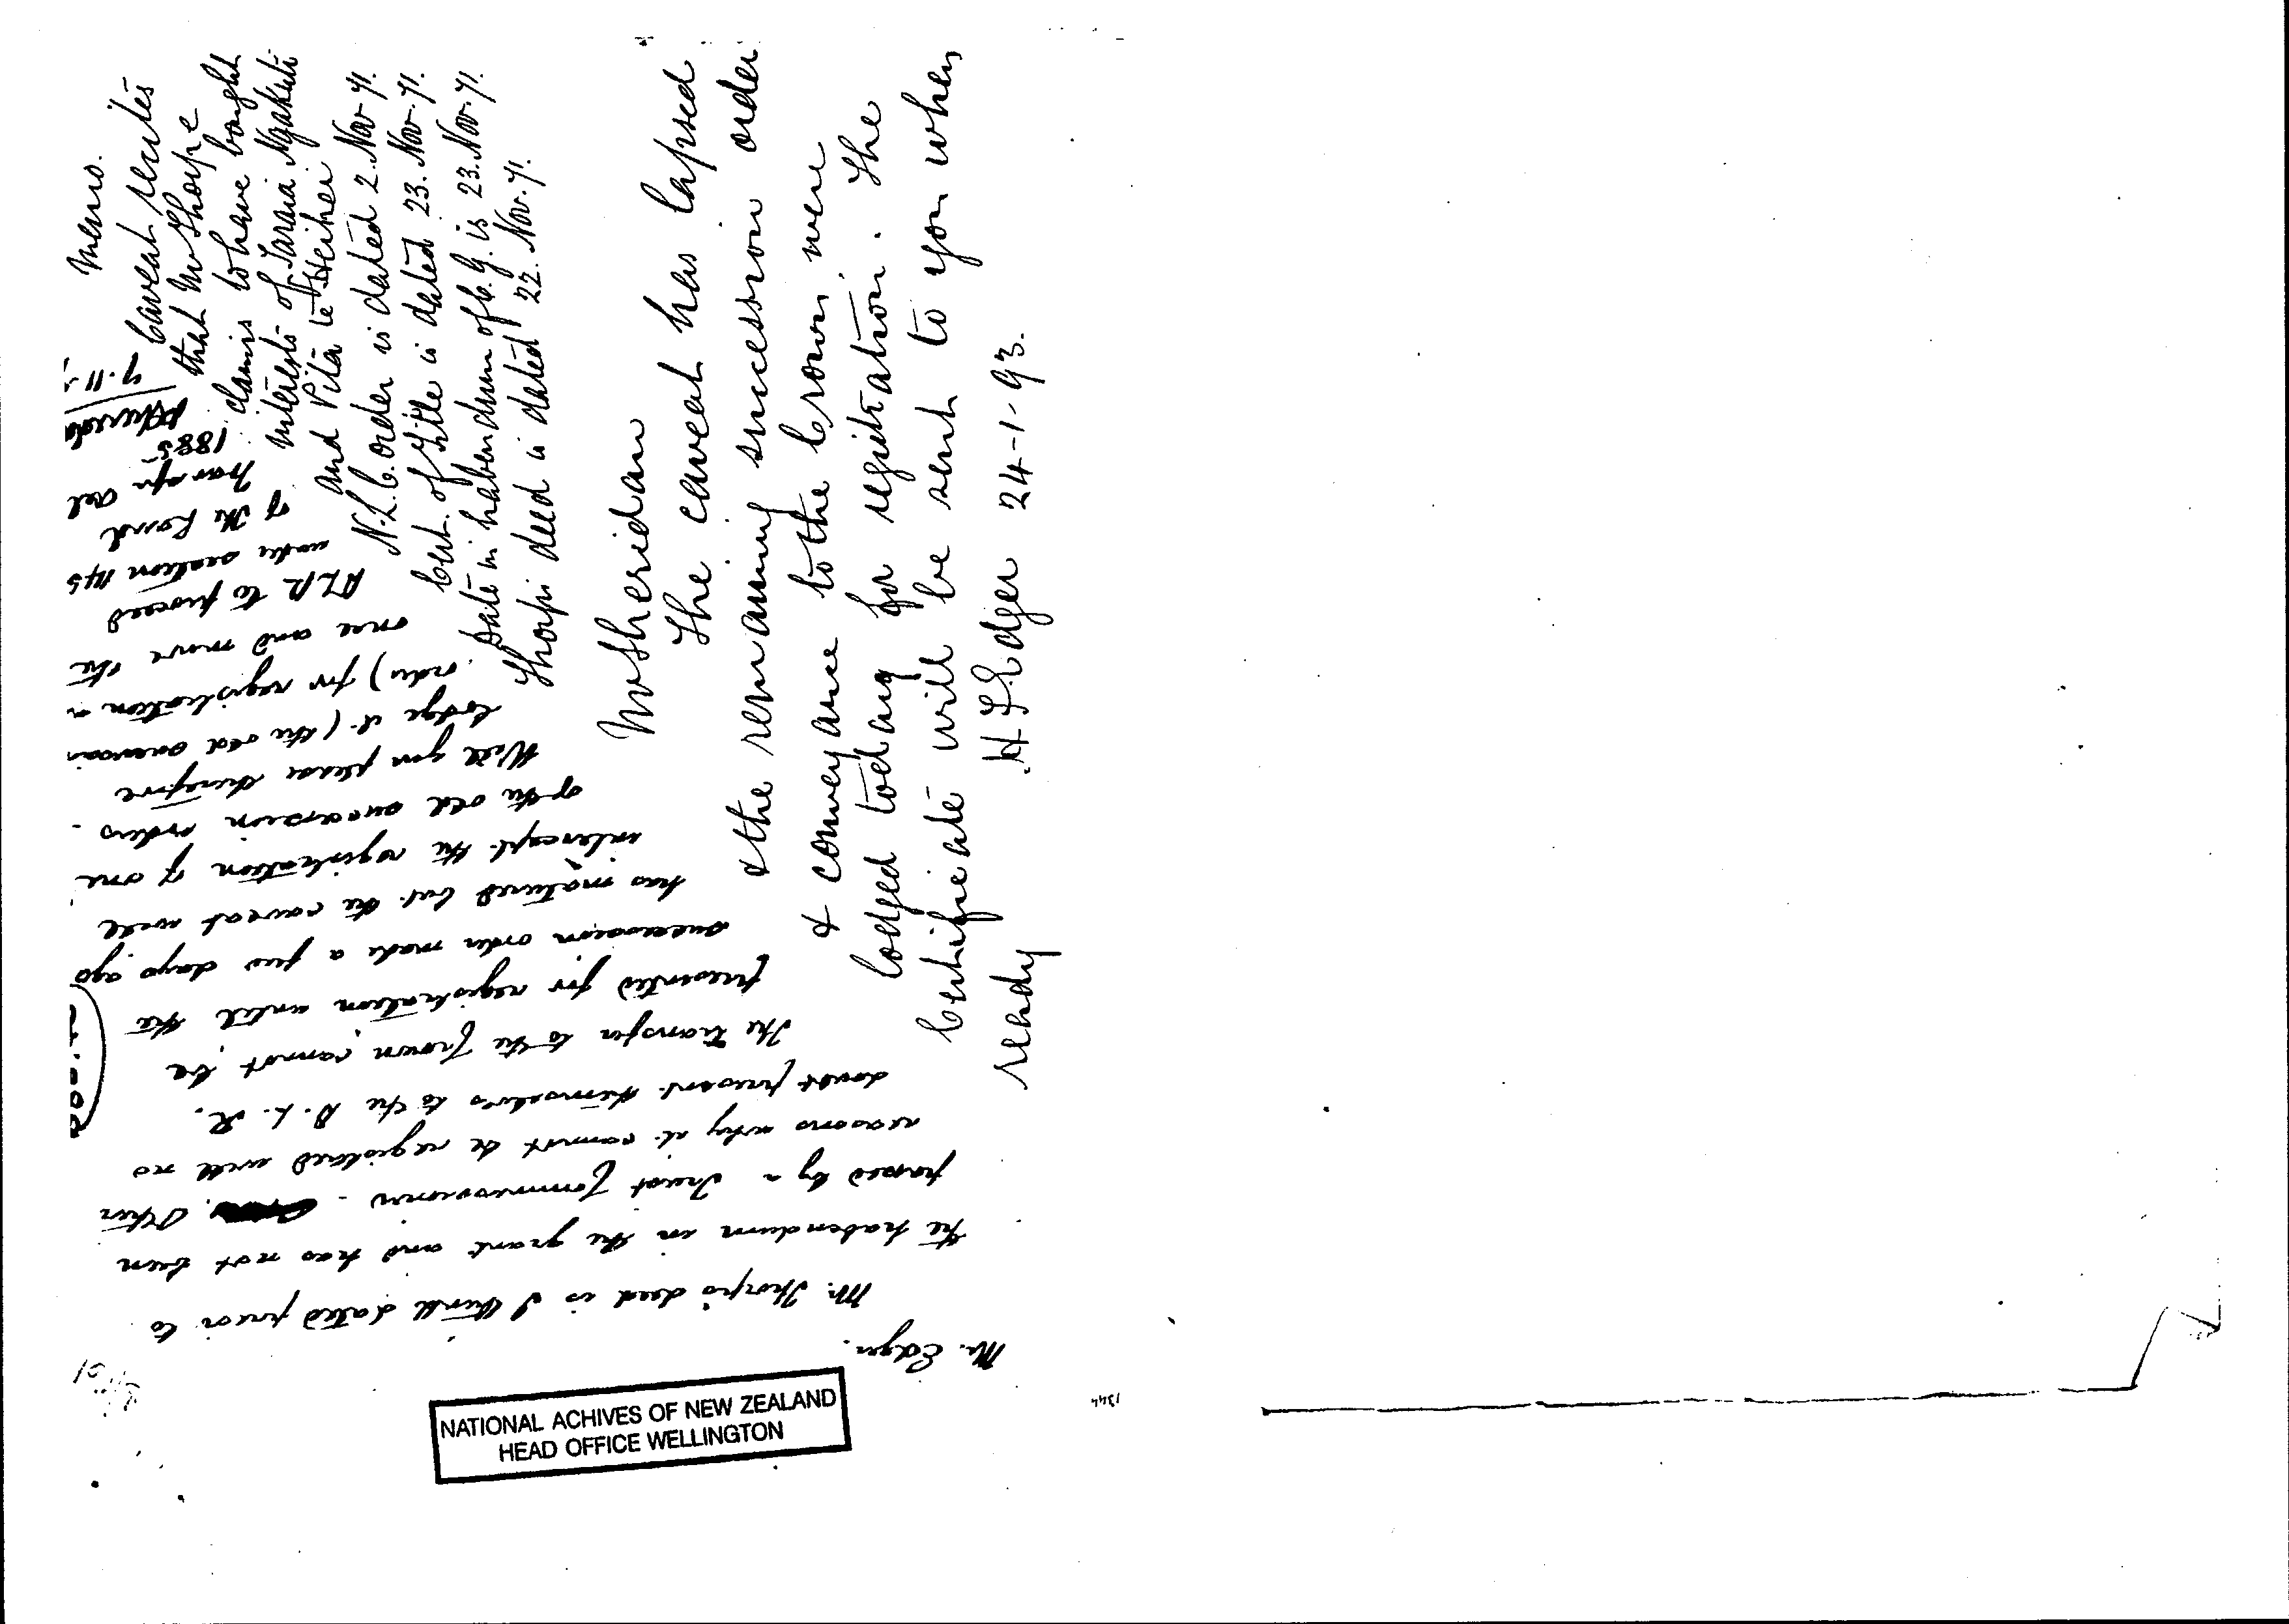 Mr. Edger.
Mr. Thorp's deed is I think dated prior to
the habendum in the grant and has not been
passed by a Trust Commissioner. Other
reasons why it cannot be registered will no
doubt present themselves to the D. L. R.
The transfer to the Crown cannot be
presented for registration until the
succession order made a few days ago
has matured but the caveat will
intercept the registration of one
of the old succession orders.
Will you please therefore
lodge it (the old succession
order) for registration
once and move the
D.L.R. to proceed
under section 145
of the Land
Transfer Act
1885
7.11
Memo.
Caveat recites
that Mr Thorpe
claims to have bought
interests of Taraia Ngakuti
and Pita te Heihei
N.L.C. order is dated 2. Nov. 71.
Cert. of Title is dated 23. Nov. 71.
Date in habendum of C.G. is 23. Nov. 71.
Thorps deed is dated 22. Nov. 71.
Mr Sheridan
The caveat has lapsed
& the remaining succession order
& conveyance to the Crown were
lodged today for registration. The
Certificate will be sent to you when
ready
H F Edger 24-1-93.
NATIONAL ACHIVES OF NEW ZEALAND
HEAD OFFICE WELLINGTON
1344